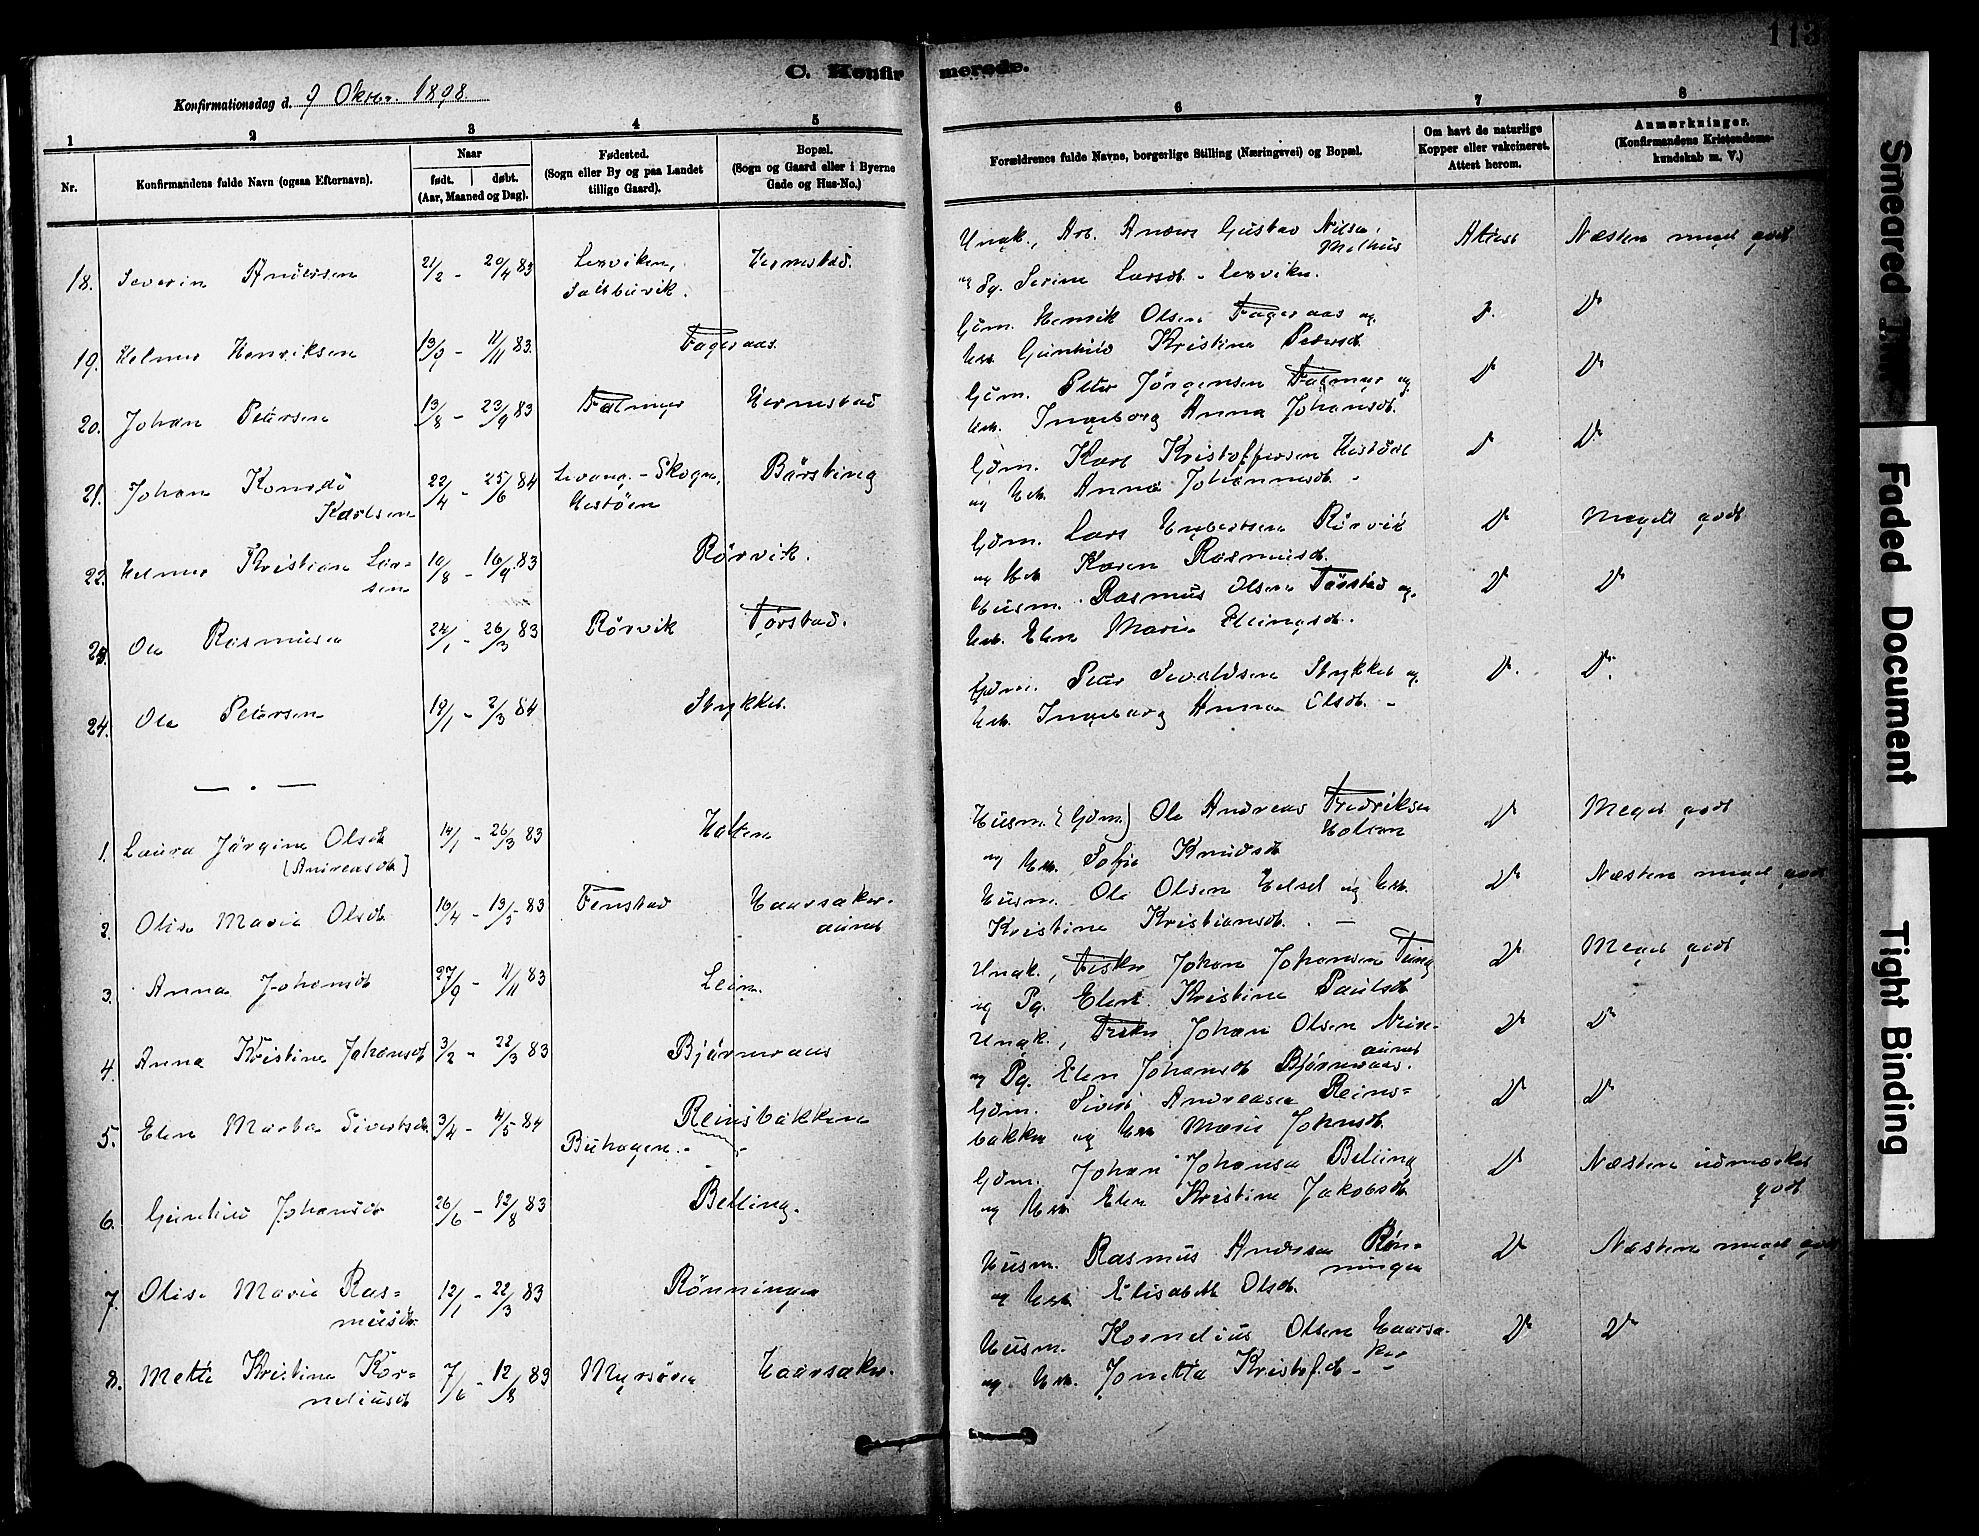 113
C. Konfirmerede.
Konfirmationsdag d. 9 Oktbr. 1898.
1 2 3 4 5 6 7 8
Nr.
Konfirmandens fulde Navn (ogsaa Efternavn).
Naar
født. døbt.
(Aar, Maaned og Dag).
Fødested.
(Sogn eller By og paa Landet
tillige Gaard).
Bopæl.
(Sogn og Gaard eller i Byerne
Gade og Hus-No.)
Forældrenes fulde Navne, borgerlige Stilling (Næringsvei) og Bopæl.
Om havt de naturlige
Kopper eller vakcineret.
Attest herom.
Anmærkninger.
(Konfirmandens Kristendoms-
kundskab m. V.)
18. Severin Andersen 21/2 - 20/4 83 Lexviken, Hermstad.
Saltbuvik.
Ugk., Arb. Anders Gustav Nilsen, Melhus
og Pg. Serine Larsdt. Lexviken.
Attest Næsten meget godt
19. Helmer Henriksen 13/9 - 11/11 83. Fageraas.
Gdm. Henrik Olsen Fageraas og
Hst. Gunhild Kristine Pedersdt.
20. Johan Petersen 13/8 - 23/9 83 Hermstad
Gdm. Peter Jörgensen og
Hst. Ingeborg Anna Johansdt.
21. Johan Karlsen 22/4 - 25/6 84 Levang. - Skogn, Börsting
Hestöen
Gdm. Karl Kristoffersen
og Hst. Anna Johannesdt.
22. Helmer Kristian Lar-
sen 10/8 - 16/9 83 Rörvik.
Gdm. Lars Rörvik
og Hst. Karen Rasmusdt.
Meget godt
23. Ole Rasmusen 24/1 - 26/3 83 Rörvik Törstad.
Husm. Rasmus Olsen Törstad og
Hst. Elen Marie Ellingsdt.
24. Ole Petersen 19/1 - 2/3 84 Stykket.
Gdm. Peter Sevaldsen Stykket og
Hst. Ingeborg Anna Olsdt. -
— . —
1. Laura Jörgine Olsdt 14/1 - 26/3 83 Holten
[Andreasdt]
Husm. (Gdm.) Ole Andreas Fredriksen
Holten
og Hst. Sofie Knudsdt
Meget godt
2. Olise Marie Olsdt 16/4 - 13/5 83 Fenstad Haarsaker-
aunet
Husm. Ole Olsen Helset og Hst.
Kristine Kristiansdt. —
Næsten meget godt
3. Anna Johansdt 27/9 - 11/11 83 Lein.
Ugk., Fisker Johan Johansen Tung
og Pg. Elen Kristine Paulsdt
Meget godt
4. Anna Kristine Johansdt 3/2 - 22/3 83 Björneraas
Ugk., Fisker Johan Olsen
aunet
og Pg. Elen Johansdt Bjørneraas.
5. Elen Marta Sivertsdt 3/4 - 4/5 84 Reinsbakken
Buhagen.
Gdm. Sivert Andreasen Reins-
bakken og Hst. Marie Johnsdt.
6. Gunhild Johansdt 26/6 - 12/8 83 Belling.
Gdm. Johan Johansen Belling
og Hst. Elen Kristine Jakobsdt
Næsten udmærket
godt
7. Olise Marie Ras-
musdt. 12/1 - 22/3 83 Rönningen
Husm. Rasmus Andersen Rön-
ningen
og Hst. Elisabeth Olsdt.
Næsten meget godt
8. Mette Kristine Kor-
neliusdt 7/6 - 12/8 83 Myrsören Haarsaker.
Husm. Kornelius Olsen Haarsa-
ker
og Hst. Jonetta Kristofdt. -
Smeared Ink
Faded Document
Tight Binding